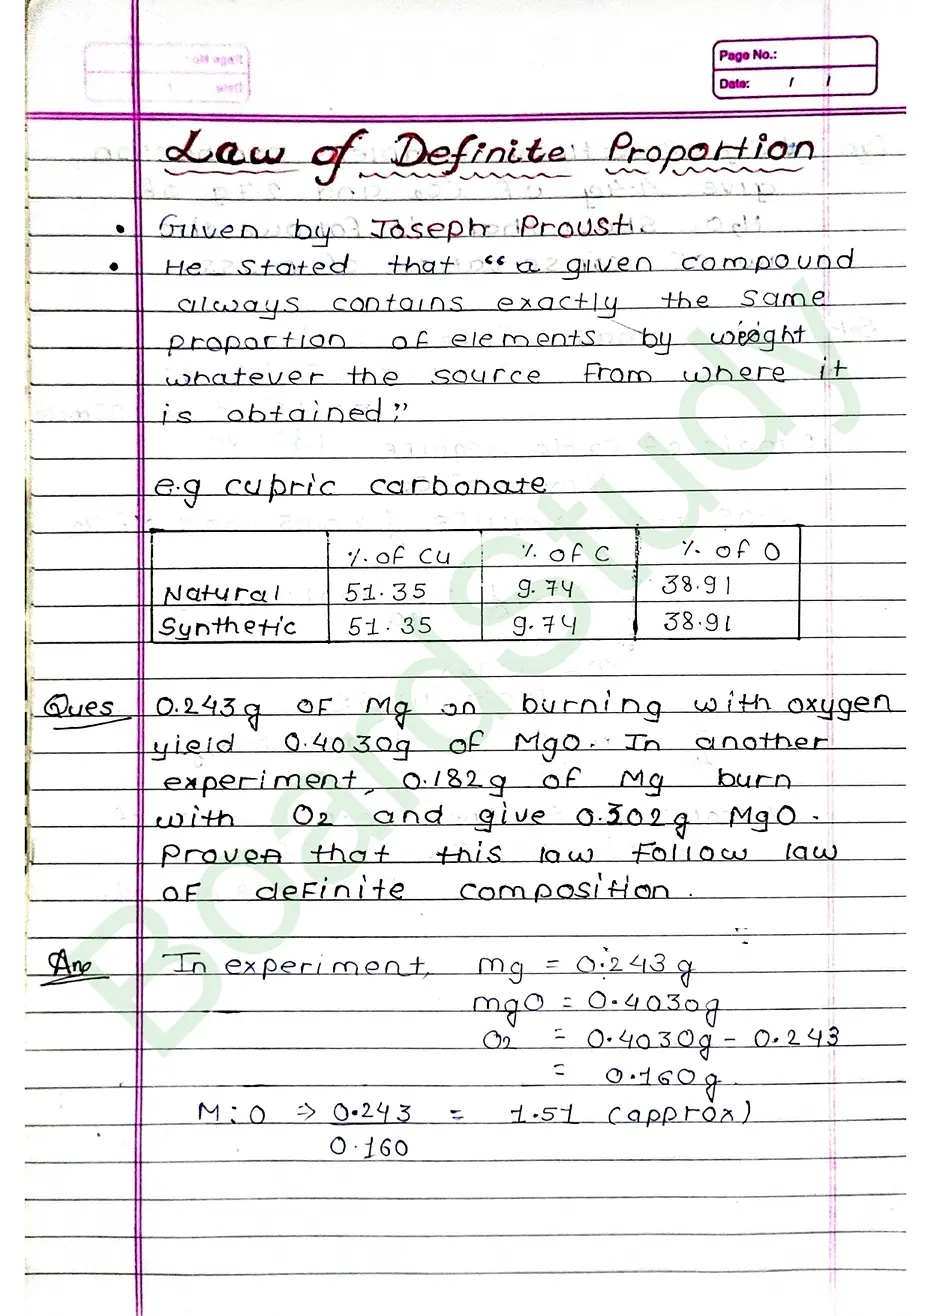 Page No.:
Date: / /
Law of Definite Proportion
• Given by Joseph Proust.
• He stated that "a given compound
always contains exactly the same
proportion of elements by weight
whatever the source from where it
is obtained."
e.g cupric carbonate
% of Cu % of C % of O
Natural 51.35 9.74 38.91
Synthetic 51.35 9.74 38.91
Ques 0.243g of Mg on burning with oxygen
yield 0.4030g of MgO. In another
experiment, 0.182g of Mg burn
with O2 and give 0.302g MgO.
Proven that this law follow law
of definite composition.
Ans In experiment, mg = 0.243g
mgO = 0.4030g
O2 = 0.4030g - 0.243
= 0.160g.
M:O ⇒ 0.243 = 1.51 (approx)
0.160
BoardStudy